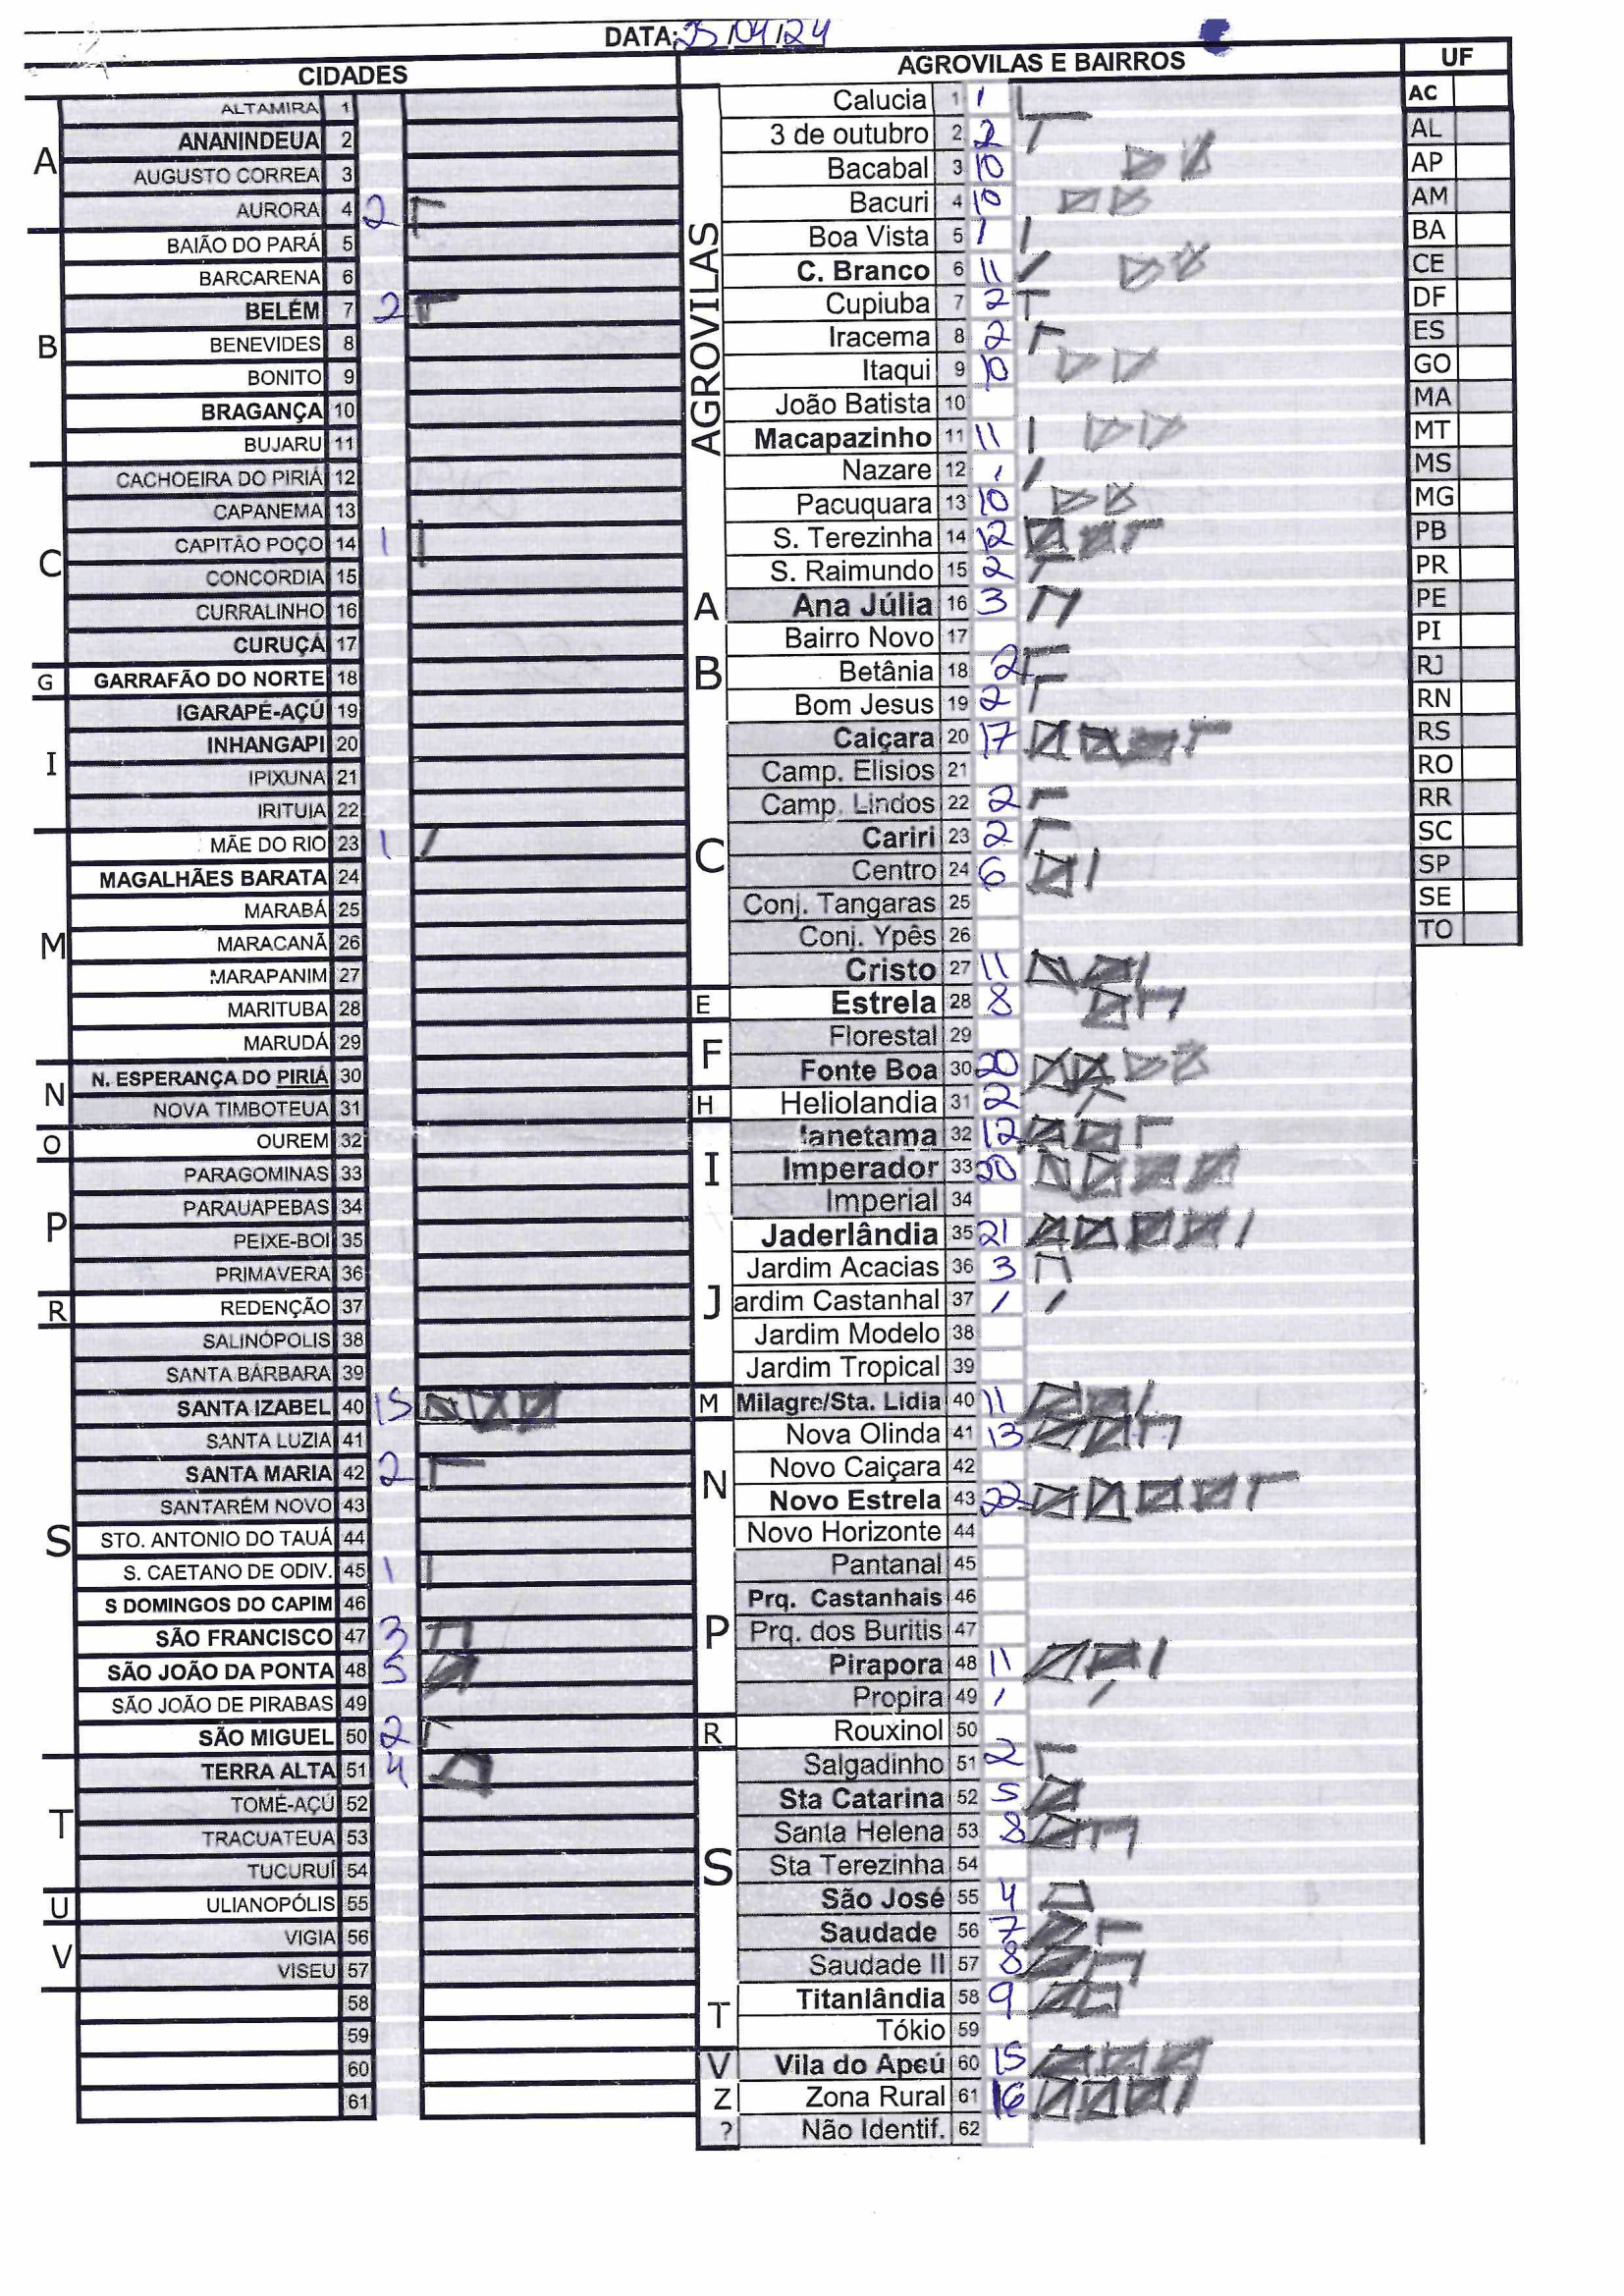 DATA: 25/04/24
CIDADES
A
ALTAMIRA 1
ANANINDEUA 2
AUGUSTO CORREA 3
AURORA 4 2
B
BAIÃO DO PARÁ 5
BARCARENA 6
BELÉM 7 2
BENEVIDES 8
BONITO 9
BRAGANÇA 10
BUJARU 11
C
CACHOEIRA DO PIRIÁ 12
CAPANEMA 13
CAPITÃO POÇO 14 1
CONCORDIA 15
CURRALINHO 16
CURUÇÁ 17
G
GARRAFÃO DO NORTE 18
I
IGARAPÉ-AÇÚ 19
INHANGAPI 20
IPIXUNA 21
IRITUIA 22
M
MÃE DO RIO 23 1
MAGALHÃES BARATA 24
MARABÁ 25
MARACANÃ 26
MARAPANIM 27
MARITUBA 28
MARUDÁ 29
N
N. ESPERANÇA DO PIRIÁ 30
NOVA TIMBOTEUA 31
O
OUREM 32
P
PARAGOMINAS 33
PARAUAPEBAS 34
PEIXE-BOI 35
PRIMAVERA 36
R
REDENÇÃO 37
S
SALINÓPOLIS 38
SANTA BÁRBARA 39
SANTA IZABEL 40 15
SANTA LUZIA 41
SANTA MARIA 42 2
SANTARÉM NOVO 43
STO. ANTONIO DO TAUÁ 44
S. CAETANO DE ODIV. 45 1
S DOMINGOS DO CAPIM 46
SÃO FRANCISCO 47 3
SÃO JOÃO DA PONTA 48 5
SÃO JOÃO DE PIRABAS 49
SÃO MIGUEL 50 2
T
TERRA ALTA 51 4
TOMÉ-AÇÚ 52
TRACUATEUA 53
TUCURUÍ 54
U
ULIANOPÓLIS 55
V
VIGIA 56
VISEU 57
58
59
60
61
AGROVILAS E BAIRROS
AGROVILAS
Calucia 1 1
3 de outubro 2 2
Bacabal 3 10
Bacuri 4 10
Boa Vista 5 1
C. Branco 6 11
Cupiuba 7 2
Iracema 8 2
Itaqui 9 10
João Batista 10
Macapazinho 11 11
Nazare 12 1
Pacuquara 13 10
S. Terezinha 14 12
S. Raimundo 15 2
A
Ana Júlia 16 3
B
Bairro Novo 17
Betânia 18 2
Bom Jesus 19 2
C
Caiçara 20 17
Camp. Elisios 21
Camp. Lindos 22 2
Cariri 23 2
Centro 24 6
Conj. Tangaras 25
Conj. Ypês 26
Cristo 27 11
E
Estrela 28 8
F
Florestal 29
Fonte Boa 30 20
H
Heliolandia 31 2
I
Ianetama 32 12
Imperador 33 20
Imperial 34
J
Jaderlândia 35 21
Jardim Acacias 36 3
ardim Castanhal 37 1
Jardim Modelo 38
Jardim Tropical 39
M
Milagre/Sta. Lidia 40 11
N
Nova Olinda 41 13
Novo Caiçara 42
Novo Estrela 43 22
Novo Horizonte 44
P
Pantanal 45
Prq. Castanhais 46
Prq. dos Buritis 47
Pirapora 48 11
Propira 49 1
R
Rouxinol 50
S
Salgadinho 51 2
Sta Catarina 52 5
Santa Helena 53 8
Sta Terezinha 54
São José 55 4
Saudade 56 7
Saudade II 57 8
T
Titanlândia 58 9
Tókio 59
V
Vila do Apeú 60 15
Z
Zona Rural 61 16
?
Não Identif. 62
UF
AC
AL
AP
AM
BA
CE
DF
ES
GO
MA
MT
MS
MG
PB
PR
PE
PI
RJ
RN
RS
RO
RR
SC
SP
SE
TO